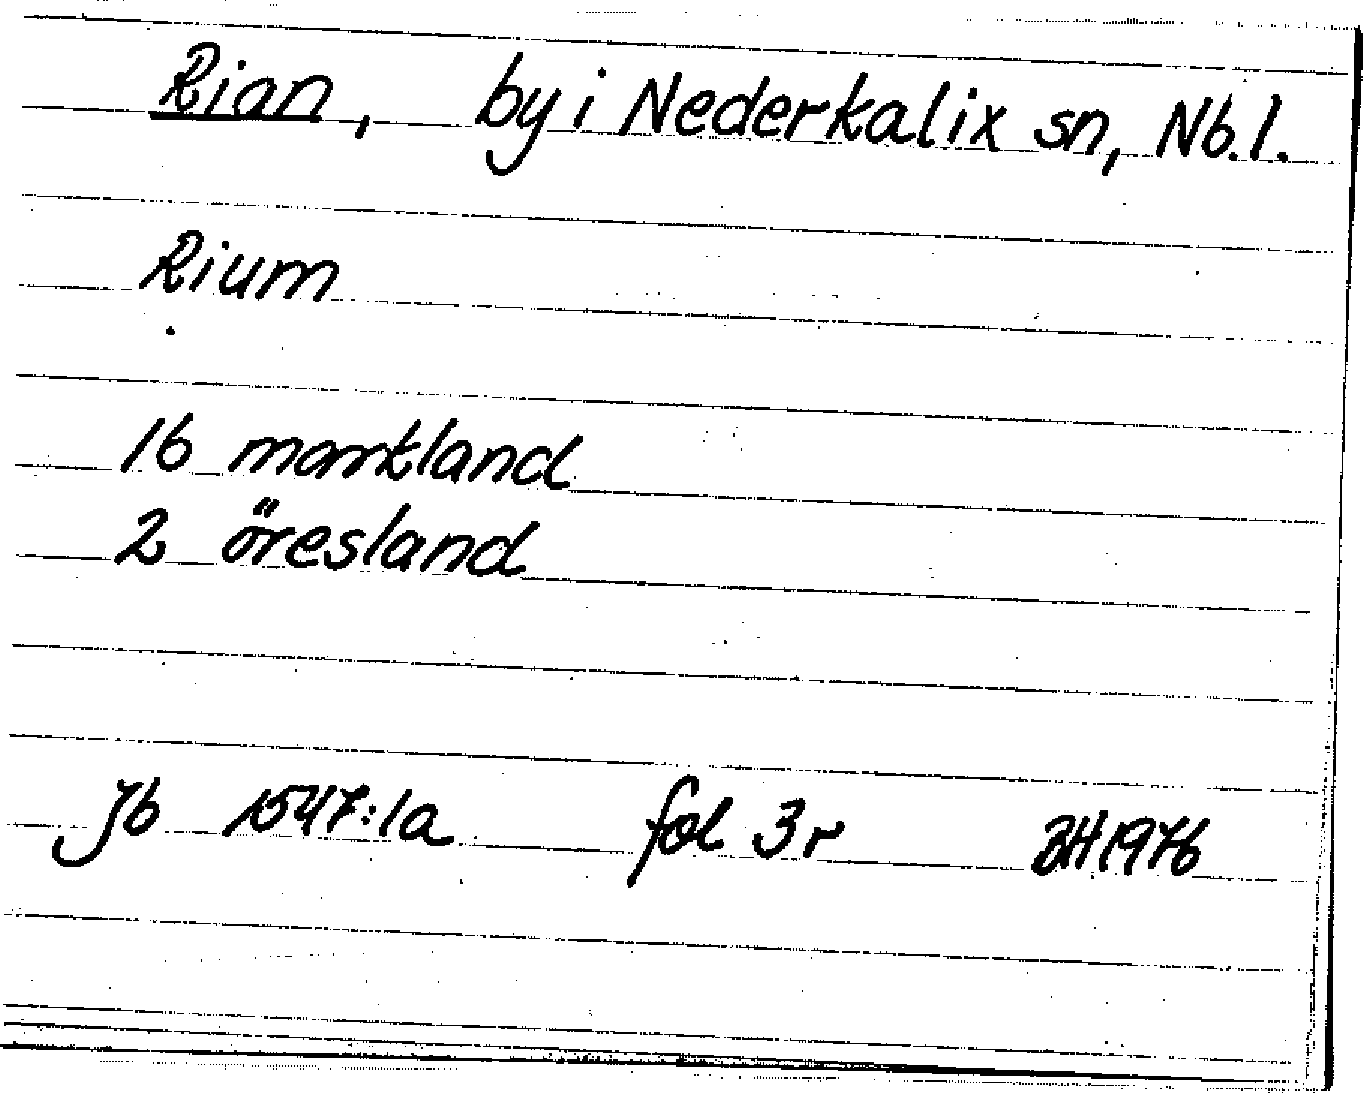 Rian, by i Nederkalix sn, Nb.l.
Rium
16 markland
2 öresland
Jb 1547:1a fol 3r BH 1976